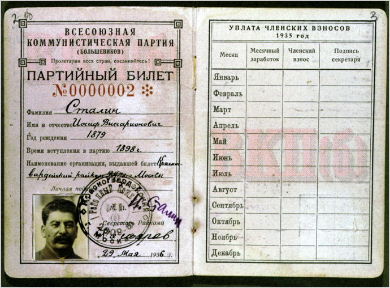 ВСЕСОЮЗНАЯ
КОММУНИСТИЧЕСКАЯ ПАРТИЯ
(БОЛЬШЕВИКОВ)
Пролетарии всех стран, соединяйтесь!
ПАРТИЙНЫЙ БИЛЕТ
№0000002
Фамилия Сталин
Имя и отчество Иосиф Виссарионович
Год рождения 1879
Время вступления в партию 1898 г.
Наименование организации, выдавшей билет Красно-
гвардейский Москвы
Личная подпись
Секретарь Райкома
29 мая 1936 г.
3
УПЛАТА ЧЛЕНСКИХ ВЗНОСОВ
1935 год
Месяц Месячный заработок Членский взнос Подпись секретаря
Январь
Февраль
Март
Апрель
Май
Июнь
Июль
Август
Сентябрь
Октябрь
Ноябрь
Декабрь
ВКП(б)